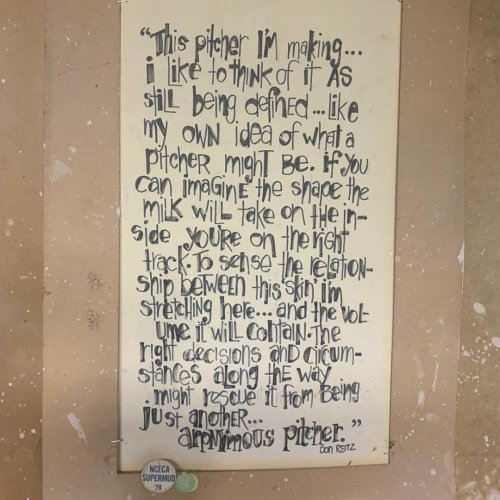 "This pitcher I'm making...
i like to think of it as
still being defined...like
my own idea of what a
pitcher might be. if you
can imagine the shape the
milk will take on the in-
side you're on the right
track. To sense the relation-
ship between this "skin" i'm
stretching here... and the vol-
ume it will contain. The
right decisions and circum-
stances along the way
might rescue it from being
just another...
anonymous pitcher."
Don Reitz
NCECA
SUPERMUD
'79